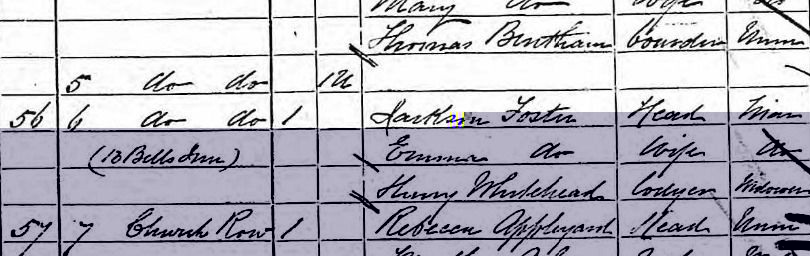 Mary do Wife do
Thomas Bentham Cousin Unm
5 do do 1U
56 6 do do 1 Jackson Foster Head Mar
(13 Bells Inn) Emma do Wife do
Henry Whitehead Lodger Widower
57 7 Church Row 1 Rebecca Appleyard Head Unm